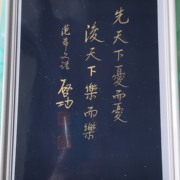 先天下憂而憂
後天下樂而樂
范希文語
启功